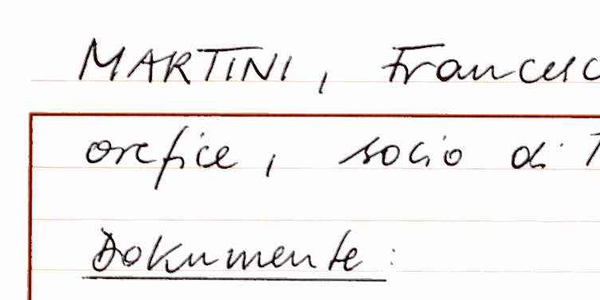 MARTINI, Francesc
orefice, socio di
Dokumente: